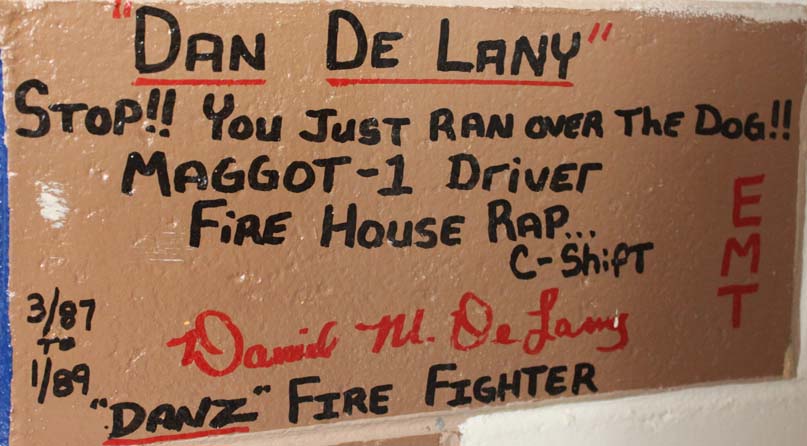 "DAN DE LANY"
STOP!! YOU JUST RAN OVER THE DOG!!
MAGGOT-1 DRIVER
FIRE HOUSE RAP...
C-SHIFT
EMT
3/87
TO
1/89
Daniel M. De Lany
"DANZ" FIRE FIGHTER